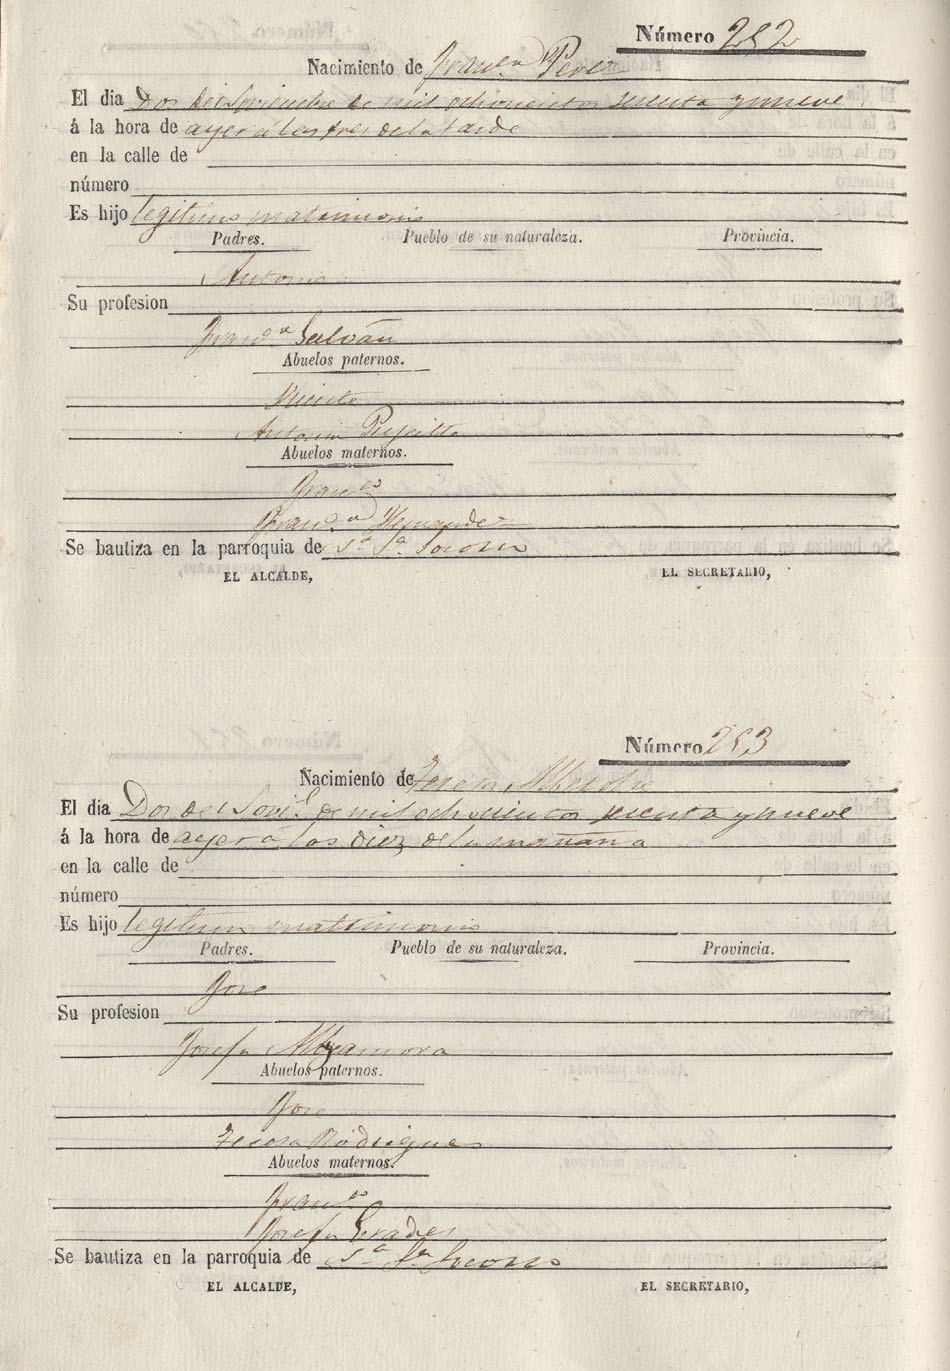 Número 252
Nacimiento de Fran.ca Perez
El dia Dos de Noviembre de mil ochocientos sesenta y nueve
á la hora de ayer á las tres de la tarde
en la calle de
número
Es hijo legitimo matrimonio
Padres. Pueblo de su naturaleza. Provincia.
Antonio
Su profesion
Fran.ca Galván
Abuelos paternos.
Vicente
Antonia
Abuelos maternos.
Fran.co
Fran.ca Hernandez
Se bautiza en la parroquia de N.a S.a Socorro
EL ALCALDE, EL SECRETARIO,
Número 253
Nacimiento de Teresa
El dia Dos de Novi.e de mil ochocientos sesenta y nueve
á la hora de ayer á las diez de la mañana
en la calle de
número
Es hijo legitimo matrimonio
Padres. Pueblo de su naturaleza. Provincia.
Jose
Su profesion
Josefa Altzamora
Abuelos paternos.
Jose
Teresa Rodrigues
Abuelos maternos.
Fran.co
Josefa
Se bautiza en la parroquia de N.a S.a Socorro
EL ALCALDE, EL SECRETARIO,